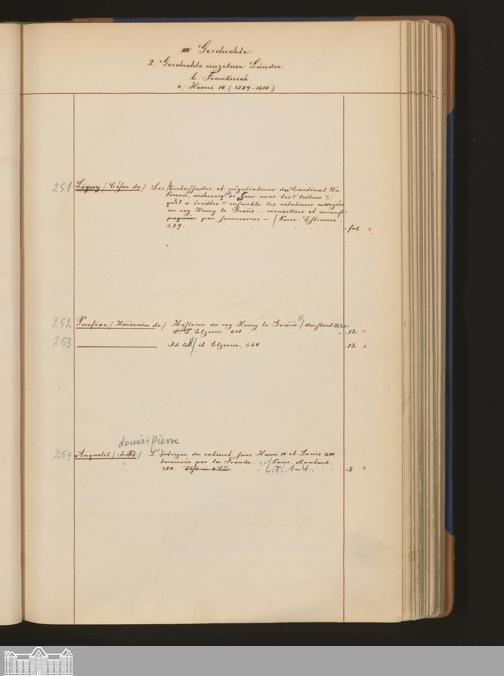 III Geschichte.
2. Geschichte einzelner Länder.
b. Frankreich
c. Henri IV. (1589-1610.)
251 Ligny / César de / Les Ambassades et négotiations du Cardinal Du
Perron, archevesq de Sens avec les = lettres =
qu'il a écrites = ensemble les relations envoyées
au roy Henry le Grand - recueillies et accom-
pagnées par sommaires - / Paris. Estienne
629. fol.
252. Perefixe / Hardouin de / Histoire du roy Henry le Grand / Amsterdam
Elzevier 661 12.
253 Id. / et Elzevier. 664 12.
Louis + Pierre
254 Anquetil / L'Intrigue du cabinet sous Henri IV et Louis XIII
terminée par la Fronde. / Paris. Moutard.
780. T. 1-4. 8